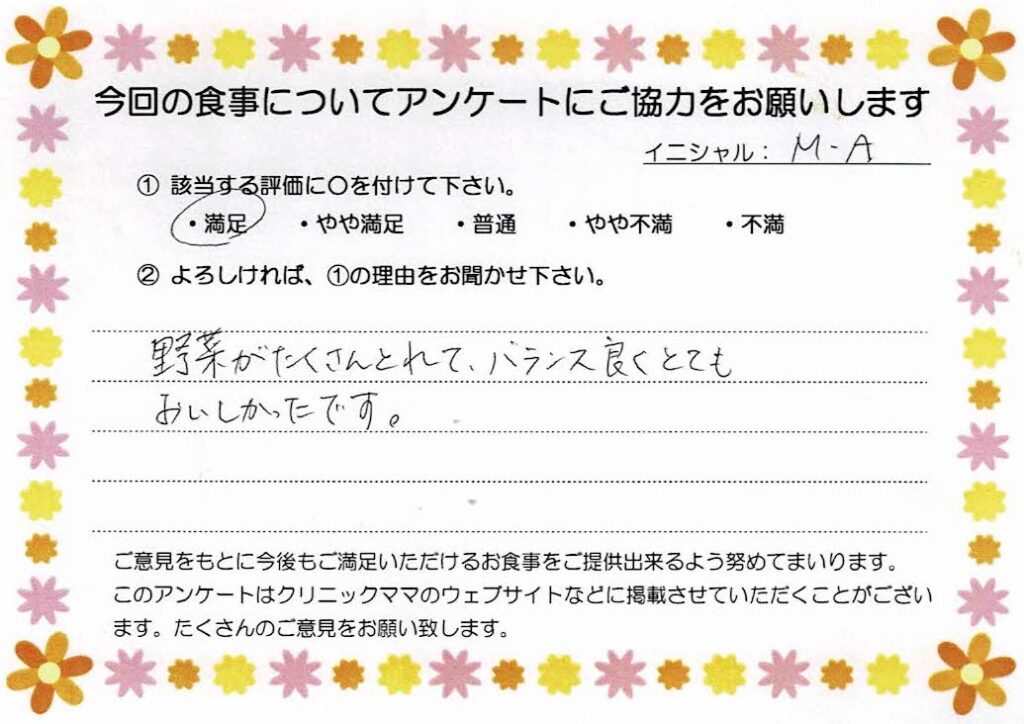 今回の食事についてアンケートにご協力をお願いします
イニシャル： M-A
① 該当する評価に〇を付けて下さい。
・満足 ・やや満足 ・普通 ・やや不満 ・不満
② よろしければ、①の理由をお聞かせ下さい。
野菜がたくさんとれて、バランス良くとても
おいしかったです。
ご意見をもとに今後もご満足いただけるお食事をご提供出来るよう努めてまいります。
このアンケートはクリニックママのウェブサイトなどに掲載させていただくことがござい
ます。たくさんのご意見をお願い致します。